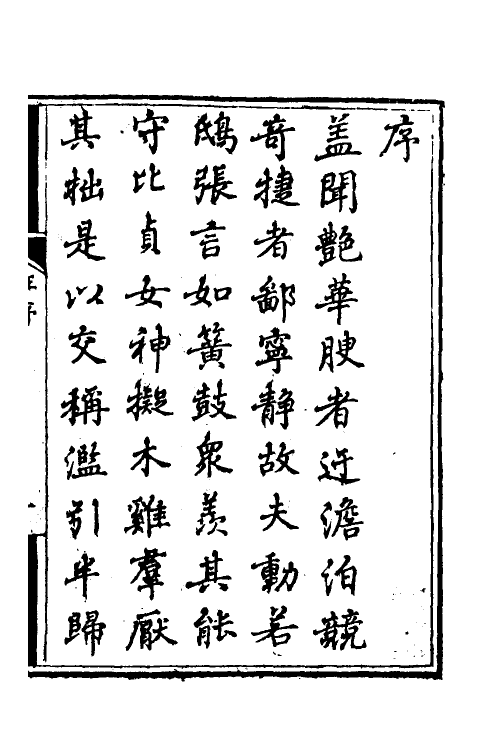 序
盖聞艶華腴者迂澹泊競
竒捷者鄙寧静故夫動若
鴟張言如簧鼓衆羨其能
守比貞女神擬木雞羣厭
其拙是以交稱濫引半歸